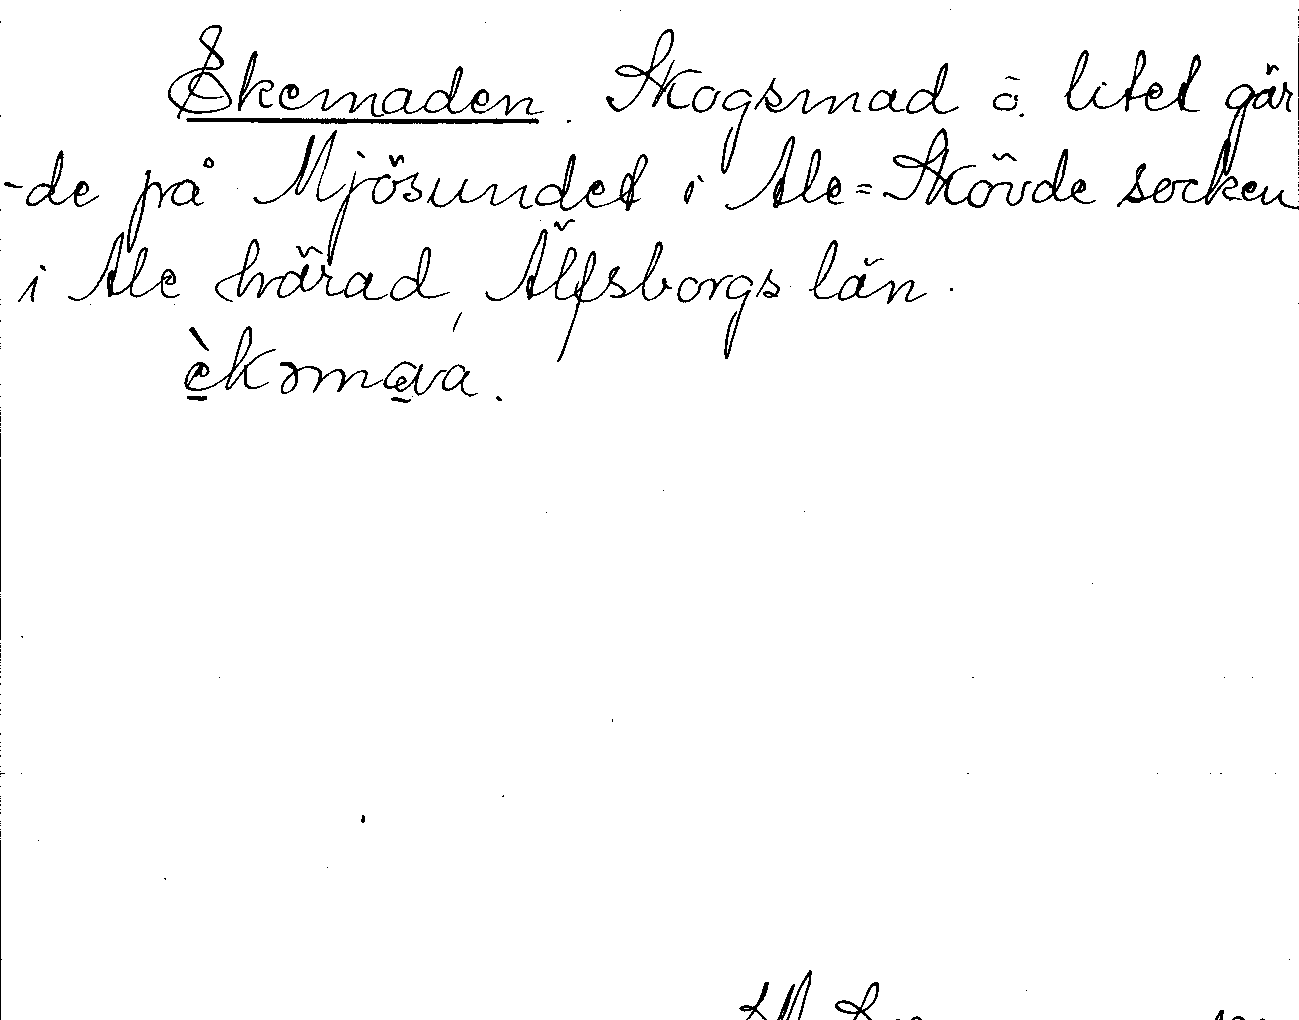 Ekemaden. Skogsmad o. litet gär
-de på Mjösundet i Ale=Skövde socken
i Ale härad, Älfsborgs län.
èkəmava.